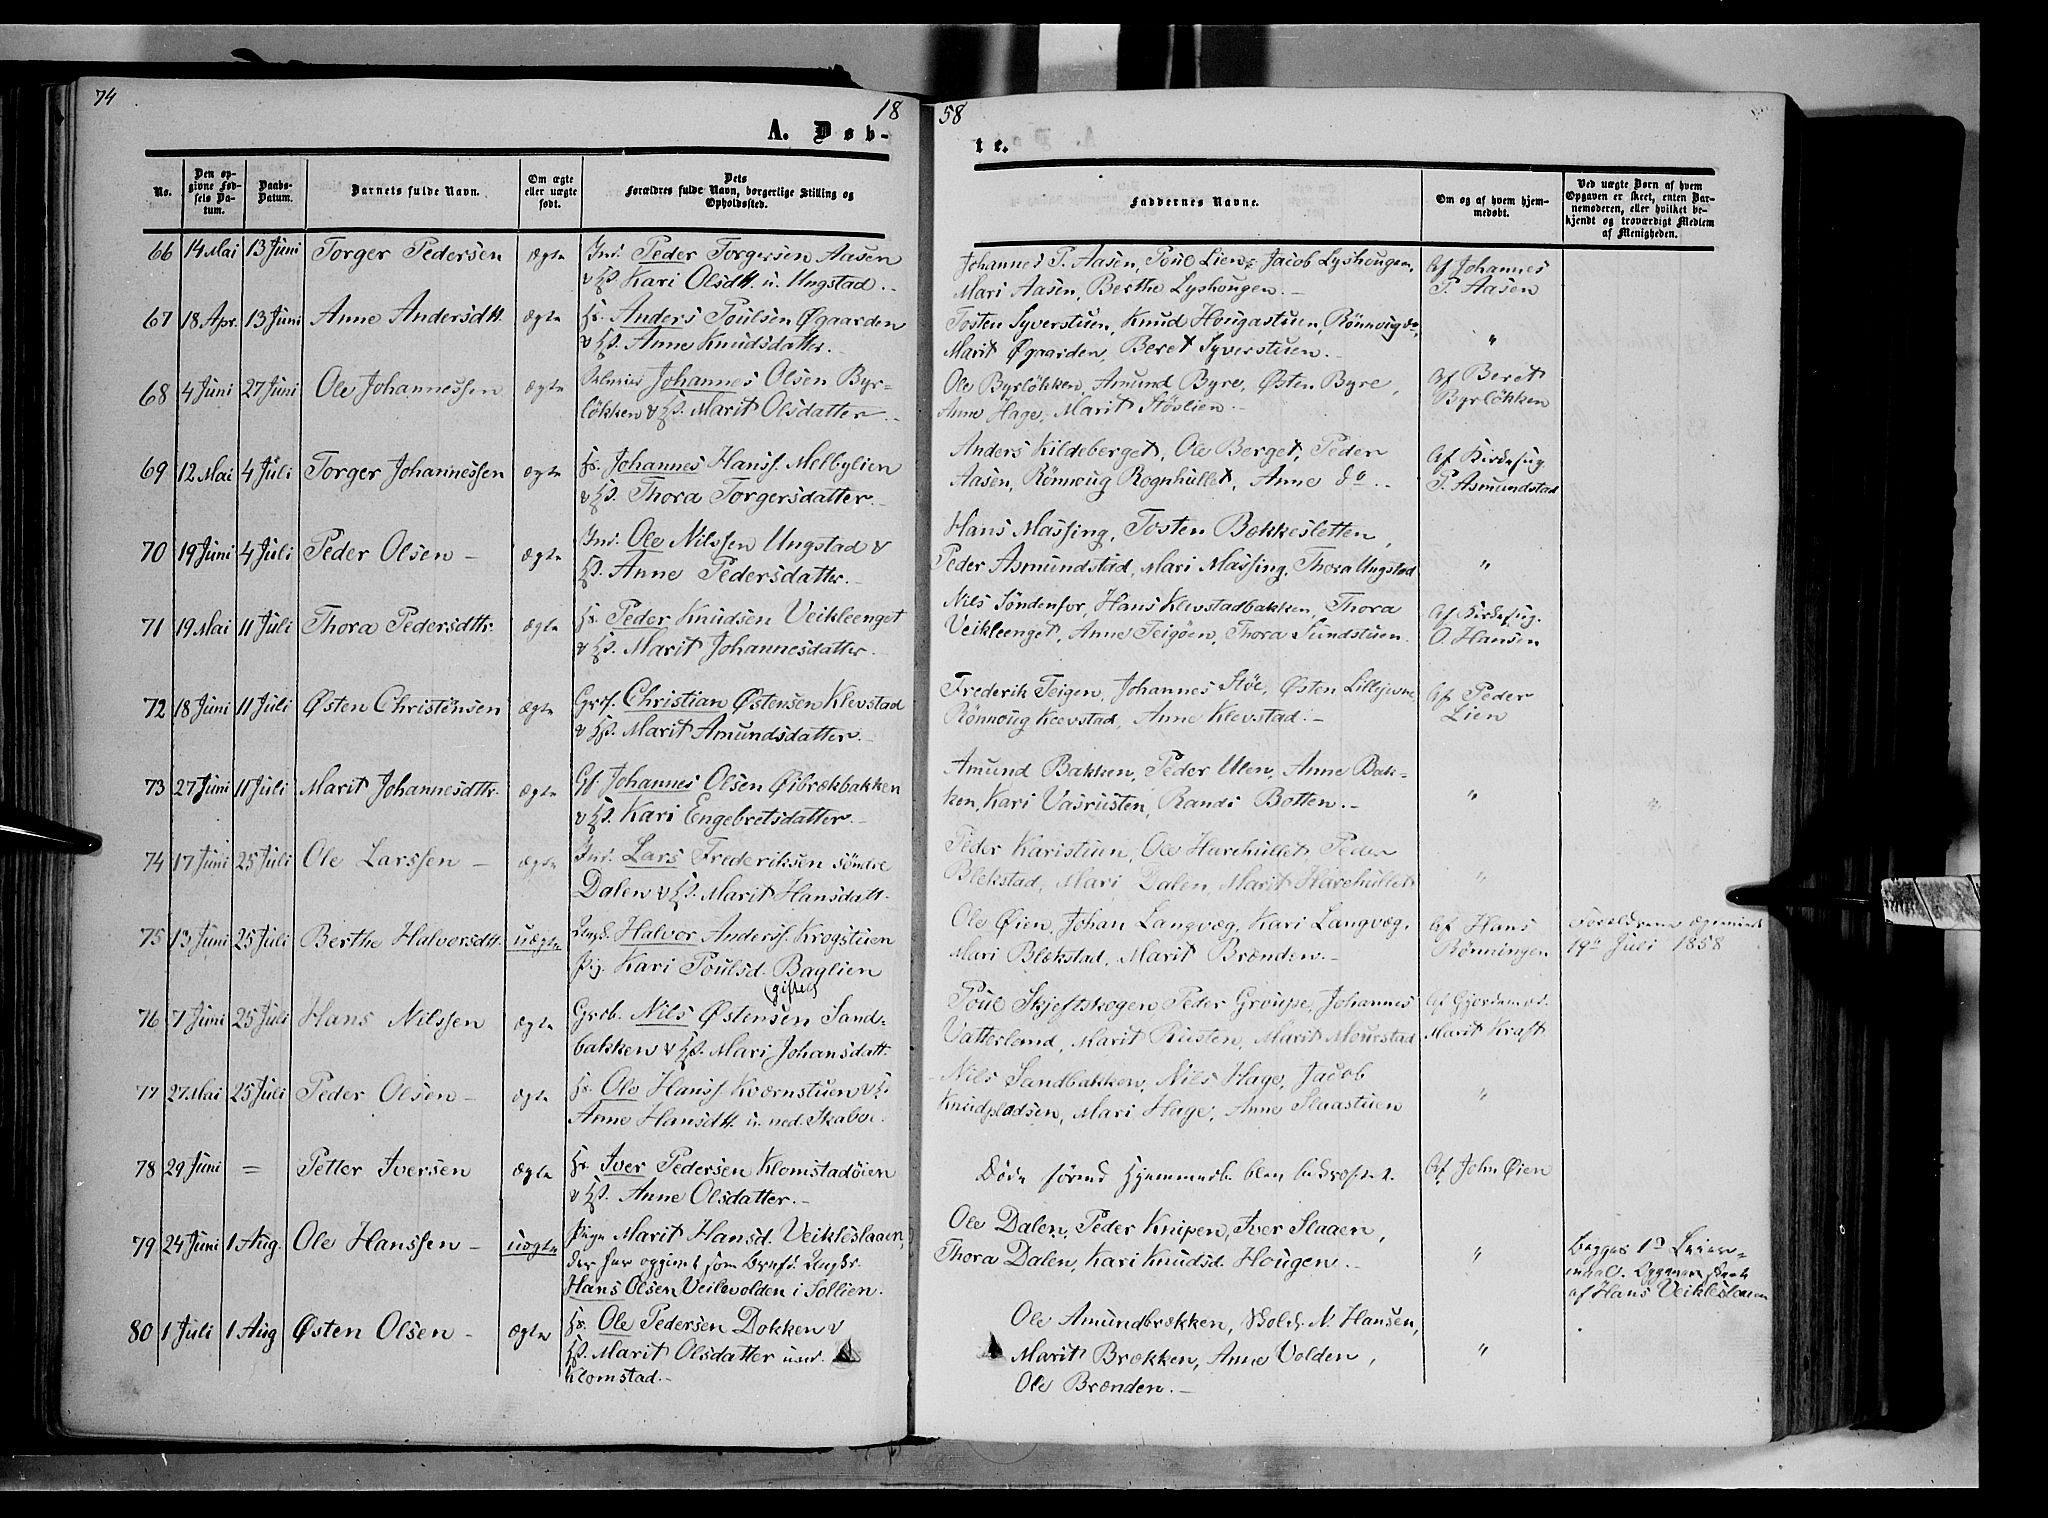 74
18
58
A. Døb-
te.
No.
Den op-
givne Fød-
sels Da-
tum.
Daabs-
Datum.
Barnets fulde Navn.
Om ægte
eller uægte
født.
Dets
Forældres fulde Navn, borgerlige Stilling og
Opholdssted.
Faddernes Navne.
Om og af hvem hjem-
medøbt.
Ved uægte Børn af hvem
Opgaven er skeet, enten Bar-
nemoderen, eller hvilket be-
kjendt og troværdigt Medlem
af Menigheden.
66 14 Mai 13 Juni Torger Pedersen ægte Ind. Peder Torgersen Aasen
v Hst. Kari Olsdtt. u. Ungstad.
Johannes P. Aasen, Poul Lien, Jacob Lyshougen,
Mari Aasen, Berthe Lyshougen.-
Af Johannes
P. Aasen
67 18 Apr. 13 Juni Anne Andersdtt. ægte Hs. Anders Poulsen Øgaarden
v Hst. Anne Knudsdatter.
Tosten Syverstuen, Knud Hougastuen, Rønnoug do,
Marit Øgaarden, Beret Syverstuen.-
"
68 4 Juni 27 Juni Ole Johannessen ægte Johannes Olsen Byr-
løkken v Hst. Marit Olsdatter
Ole Byrløkken, Amund Byre, Østen Byre,
Anne Hage, Marit Støslien.-
Af Beret
Byrløkken
69 12 Mai 4 Juli Torger Johannessen ægte Hs. Johannes Hanss. Melbylien
v Hst. Thora Torgersdatter.-
Anders Kildeberget, Ole Berget, Peder
Aasen, Rønnoug Rognhullet, Anne do.-
Af Kirkesng.
P. Asmundstad
70 19 Juni 4 Juli Peder Olsen - ægte Ind. Ole Nilssen Ungstad v
Hst. Anne Pedersdatter.-
Hans Massing, Tosten Bækkesletten,
Peder Asmundstad, Mari Massing, Thora Ungstad
"
71 19 Mai 11 Juli Thora Pedersdttr. ægte Hs. Peder Knudsen Veikleenget
v Hst. Marit Johannesdatter.-
Nils Søndenfor, Hans Klevstadbakken, Thora
Veikleenget, Anne Teigøen, Thora Sundstuen.
Af Kirkesng.
O. Hansen
72 18 Juni 11 Juli Østen Christensen ægte Grf. Christian Østensen Klevstad
v Hst. Marit Amundsdatter.-
Frederik Teigen, Johannes Støe, Østen Lillejevne,
Rønnoug Klevstad, Anne Klevstad.-
Af Peder
Lien
73 27 Juni 11 Juli Marit Johannesdttr. ægte Gf. Johannes Olsen Øibrækbakken
v Hst. Kari Engebretsdatter.-
Amund Bakken, Peder Ulen, Anne Bak-
ken, Kari Vasrusten, Randi Botten.-
" "
74 17 Juni 25 Juli Ole Larssen - ægte Ind. Lars Frederiksen søndre
Dalen v Hst. Marit Hansdatt.
Peder Karistuen, Ole Harehullet, Peder
Blekstad, Mari Dalen, Marit Harehullet
"
75 13 Juni 25 Juli Berthe Halvorsdtt. uægte Ungk. Halvor Anderss. Krogstuen
Pig. Kari Poulsd. Baglien
(gifte)
Ole Øien, Johan Langvæg, Kari Langvæg,
Mari Blekstad, Marit Brænden.-
Af Hans
Rønningen
Forældrene
19de Juli 1858
76 7 Juni 25 Juli Hans Nilssen ægte Grb. Nils Østensen Sand-
bakken v Hst. Mari Johansdatt.
Poul Skjeftskogen, Peder Groupe, Johannes
Vatterland, Marit Rusten, Marit Mourstad
Af Gjordemod.
Marit Kraft
77 27 Mai 25 Juli Peder Olsen - ægte Hs. Ole Hanss. Kværnstuen v H.
Anne Hansdtt. u. ned. Skaboe.
Nils Sandbakken, Nils Hage, Jacob
Knudpladsen, Mari Hage, Anne Slaastuen
"
78 29 Juni = Petter Iversen ægte Hs. Iver Pedersen Klomstadøien
v Hst. Anne Olsdatter.-
Døde førend Hjemmedb. blev bekræftet.
Af John Øien
79 24 Juni 1 Aug. Ole Hanssen - uægte Pige Marit Hansd. Veikleslaaen,
der har opgivet som Barnef. Ungkr.
Hans Olsen Veslevolden i Sollien.
Ole Dalen, Peder Knipen, Iver Slaaen,
Thora Dalen, Kari Knudsd. Hougen.-
"
Begges 1ste Leier-
maal. Opgaven skeet
af Hans Veikleslaaen
80 1 Juli 1 Aug Østen Olsen - ægte Hs. Ole Pedersen Dokken v
Hst. Marit Olsdatter und.
Klomstad.-
Ole Amundbrækken, Sold. N. Hansen,
Marit Brækken, Anne Volden,
Ole Brænden.-
"